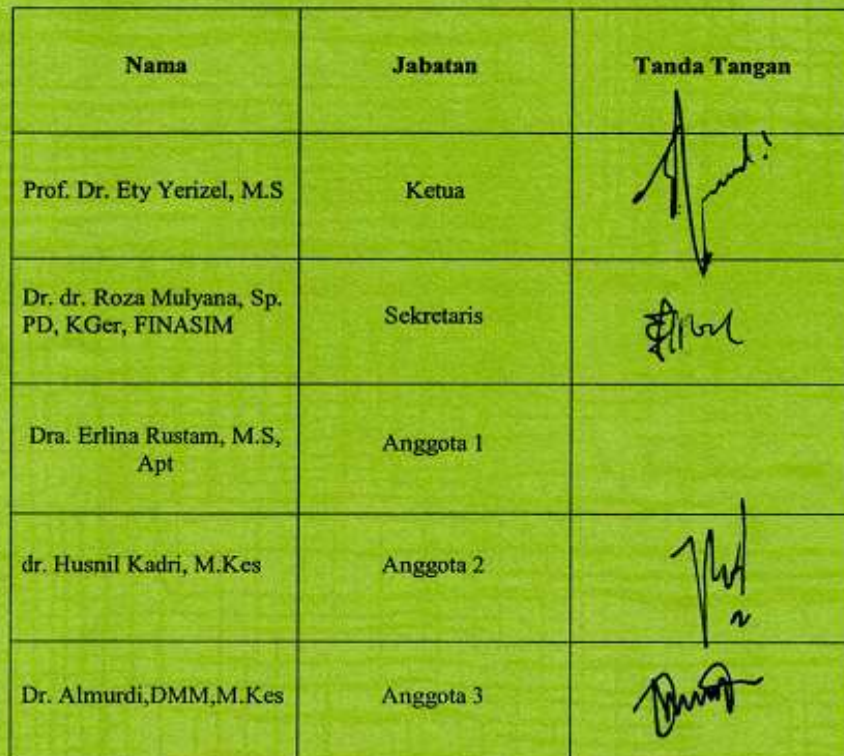 Nama Jabatan Tanda Tangan
Prof. Dr. Ety Yerizel, M.S Ketua
Dr. dr. Roza Mulyana, Sp.
PD, KGer, FINASIM Sekretaris
Dra. Erlina Rustam, M.S,
Apt Anggota 1
dr. Husnil Kadri, M.Kes Anggota 2
Dr. Almurdi,DMM,M.Kes Anggota 3